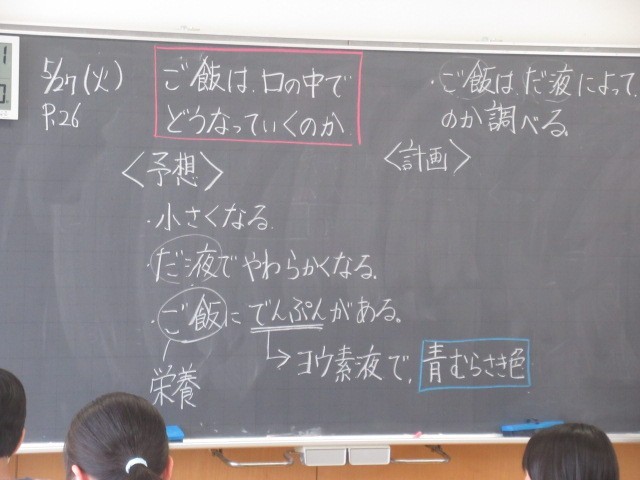 5/27(火)
P.26
ご飯は、口の中で
どうなっていくのか
<予想>
・小さくなる。
・だ液でやわらかくなる。
・ご飯にでんぷんがある。
栄養
→ヨウ素液で、青むらさき色
・ご飯は、だ液によって、
のか調べる。
<計画>